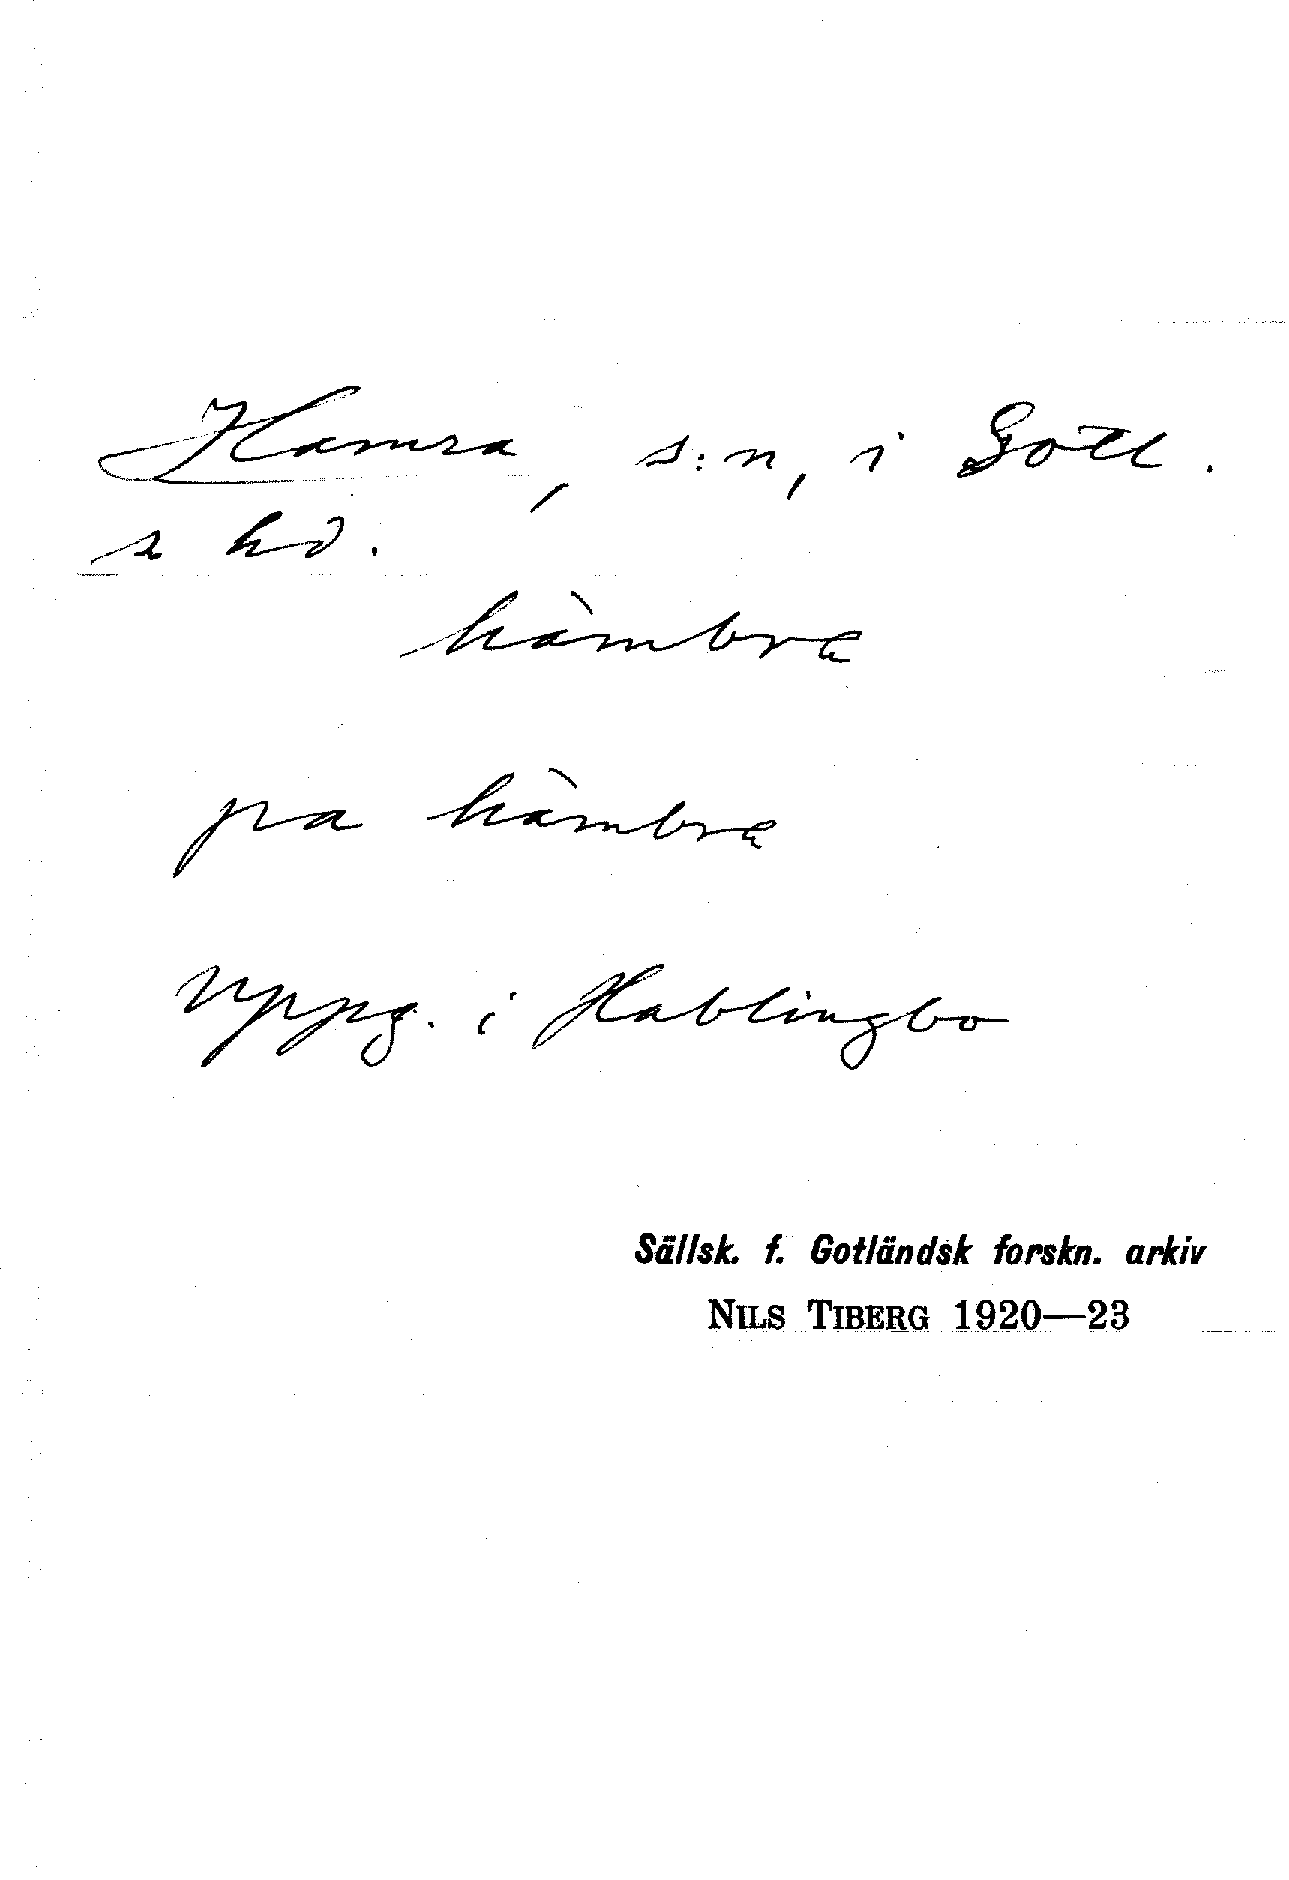 Hamra, s:n, i Gotl.
s hd.
hàmbrę
pa hàmbrę
Uppg. i Hablingbo
Sällsk. f. Gotländsk forskn. arkiv
NILS TIBERG 1920—23